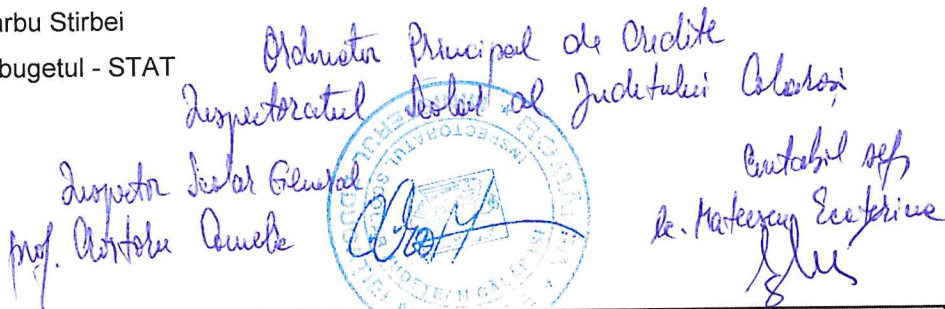 arbu Stirbei
bugetul - STAT
Ordonator Principal de Credite
Inspectoratul Scolar al Judetului Calarasi
Inspector Scolar General
prof.
Contabil sef,
Ec. Mateescu Ecaterina
INSPECTORATUL